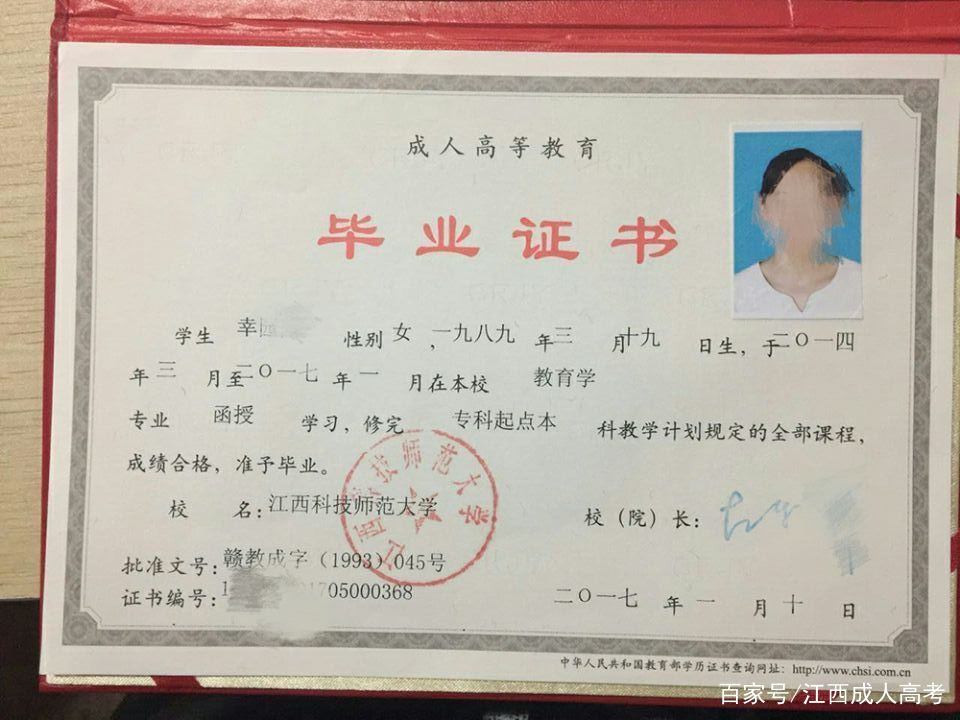 成人高等教育
毕业证书
学生 幸 性别 女 、一九八九 年 三 月 十九 日生，于 二○一四
年 三 月至 二○一七 年 一 月在本校 教育学
专业 函授 学习，修完 专科起点本 科教学计划规定的全部课程，
成绩合格，准予毕业。
校 名：江西科技师范大学 校（院）长：
批准文号：赣教成字（1993）045号
证书编号：1 705000368 二○一七 年 一 月 十 日
中华人民共和国教育部学历证书查询网址：http://www.chsi.com.cn
百家号/江西成人高考